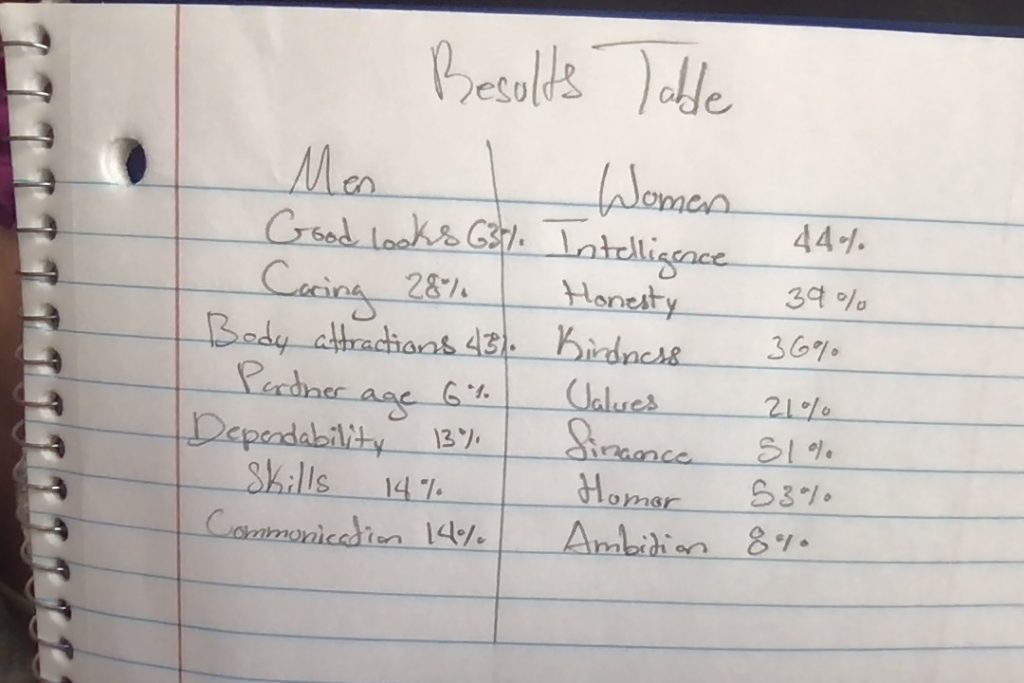 Results Table
Men Women
Good looks 63% Intelligence 44%
Caring 28% Honesty 39%
Body attractions 43% Kindness 36%
Partner age 6% Values 21%
Dependability 13% Finance 51%
Skills 14% Homor 53%
Communication 14% Ambition 8%